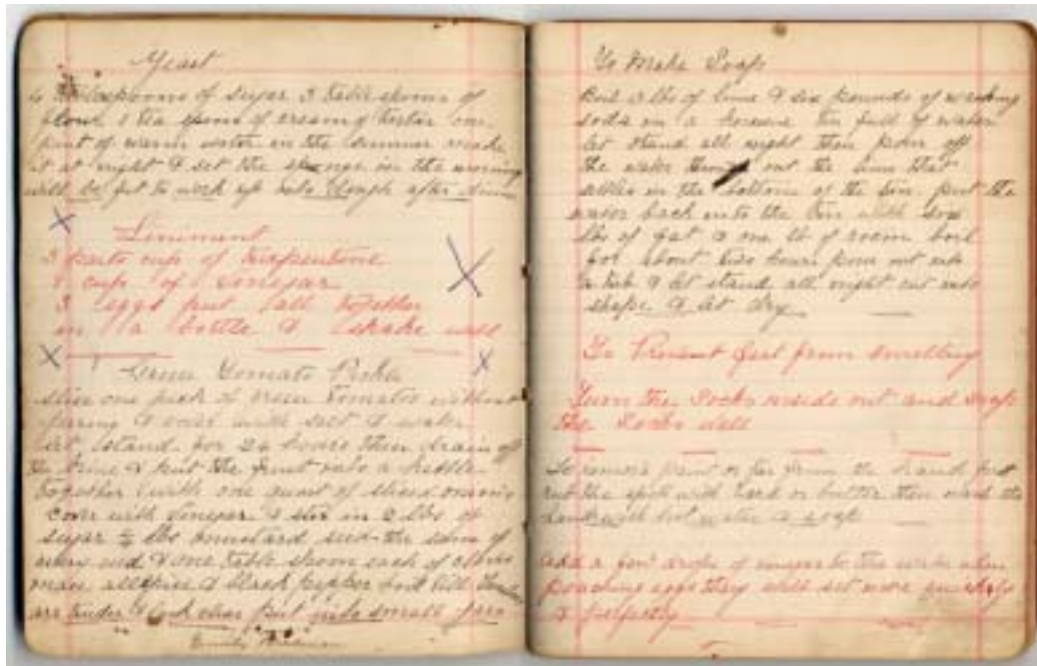 Yeast
4 tablespoons of sugar 3 table spoons of
flour 1 tea spoon of cream of tartar one
pint of warm water in the summer make
it at night & set the sponge in the morning
will be fit to work up into dough after
Liniment
3 parts cup of turpentine
1 cup of vinegar
3 eggs put all together
in a bottle & shake well
Green Tomato Pickle
slice one peck of green tomatos without
& cover with salt & water
let stand for 24 hours then drain off
the brine & put the fruit into a kettle
together with one quart of sliced onions
cover with vinegar & stir in 2 lbs of
sugar ½ lbs mustard seed the same of
seed & one table spoon each of cloves
allspice & black pepper boil till
are tender & look clear Put into small jars
Emily
To Make Soap
Boil 3 lbs of lime & six pounds of washing
soda in a tin full of water
let stand all night then pour off
the water out the lime that
settles in the bottom of the tin put the
water back into the tin with six
lbs of fat & one lb of boil
for about two hours pour out into
a tub & let stand all night cut into
shape & let dry
To Prevent feet from smelling
Turn the Socks inside out and soap
the Socks well
To remove paint or tar from the hand first
rub the spots with lard or butter then wash the
hand with hot water & soap
add a few drops of vinegar to the water when
poaching eggs they will set more quickly
& perfectly